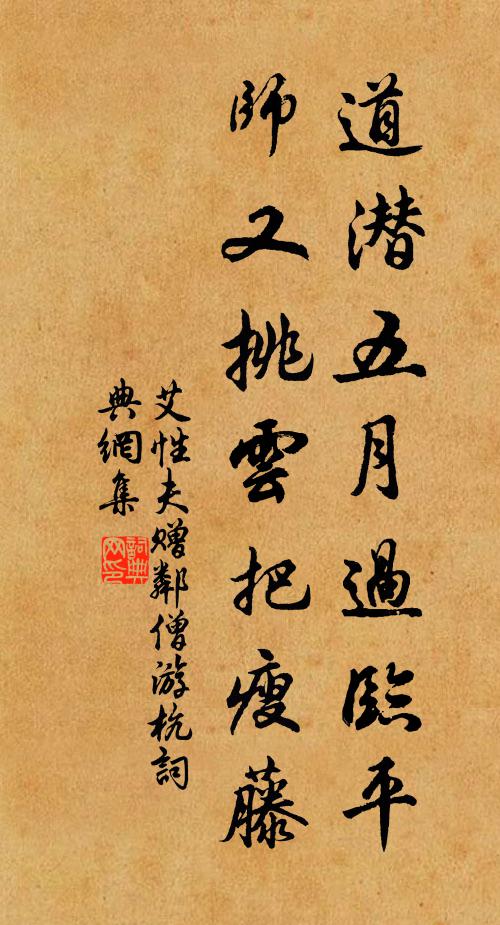 道潛五月過臨平
師又挑雲把瘦藤
艾性夫贈鄰僧游杭詞
典網集
詞典網印